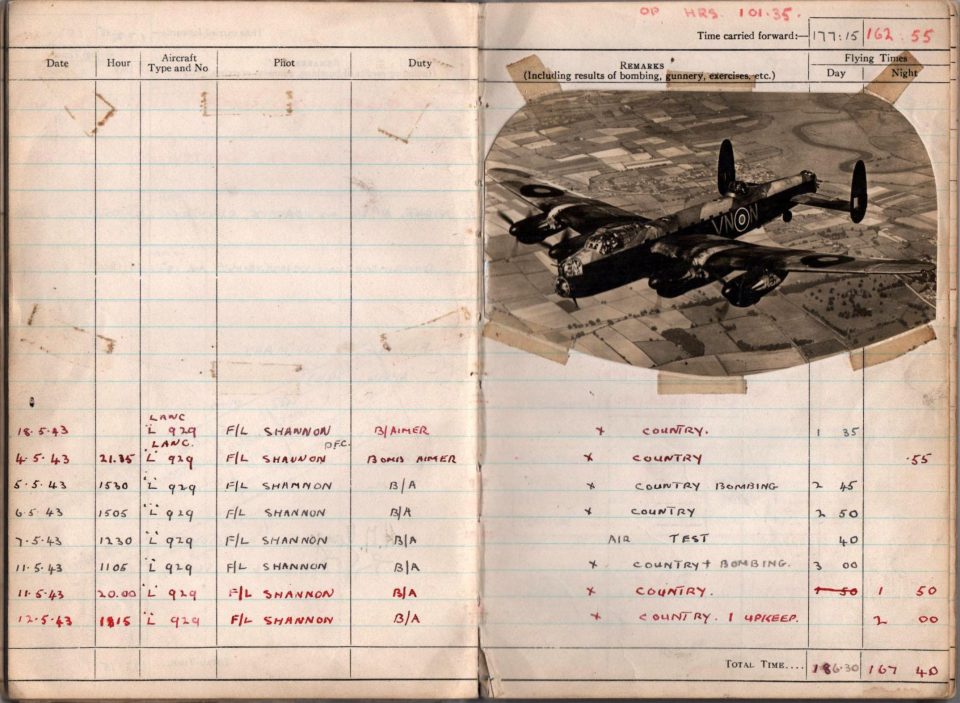 OP HRS 101.35.
Time carried forward:— 177:15 162:55
Date Hour Aircraft Type and No Pilot Duty REMARKS (Including results of bombing, gunnery, exercises, etc.) Flying Times Day Night
VN N
LANC
18.5.43 "L" 929 F/L SHANNON B/AIMER X COUNTRY. 1 35
LANC. D.F.C.
4.5.43 21.35 "L" 929 F/L SHANNON BOMB AIMER X COUNTRY .55
5.5.43 1530 "L" 929 F/L SHANNON B/A X COUNTRY BOMBING 2 45
6.5.43 1505 "L" 929 F/L SHANNON B/A X COUNTRY 2 50
7.5.43 1230 "L" 929 F/L SHANNON B/A AIR TEST 40
11.5.43 1105 "L" 929 F/L SHANNON B/A X COUNTRY + BOMBING. 3 00
11.5.43 20.00 "L" 929 F/L SHANNON B/A X COUNTRY. 1 50 1 50
12.5.43 1815 "L" 929 F/L SHANNON B/A X COUNTRY. 1 UPKEEP. 2 00
TOTAL TIME.... 186.30 167 40